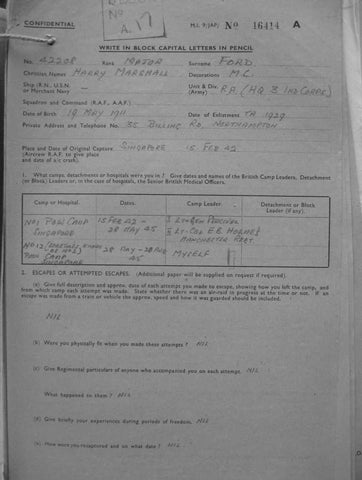 CONFIDENTIAL
M.I. 9/JAP/ No 16414 A
No
A.17
WRITE IN BLOCK CAPITAL LETTERS IN PENCIL
No. 42208 Rank MAJOR Surname FORD
Christian Names HARRY MARSHALL Decorations M.C.
Ship (R.N., U.S.N. or Merchant Navy) — Unit & Div. (Army) R.A. (HQ 3 IND CORPS)
Squadron and Command (R.A.F., A.A.F.)
Date of Birth 19 MAY 1911 Date of Enlistment TA 1929
Private Address and Telephone No. 35 BILLING RD, NORTHAMPTON
Place and Date of Original Capture SINGAPORE 15 FEB 42
(Aircrew R.A.F. to give place
and date of a/c crash).
1. What camps, detachments or hospitals were you in? Give dates and names of the British Camp Leaders, Detachment
(or Block) Leaders or, in the case of hospitals, the Senior British Medical Officers.
Camp or Hospital. Dates. Camp Leader. Detachment or Block Leader (if any).
No 1 POW CAMP SINGAPORE 15 FEB 42 – 28 MAY 45 LT-GEN PERCIVAL
LT-COL E.B. HOLMES MANCHESTER REGT
CAMP SINGAPORE 28 MAY – 28 AUG 45 MYSELF
2. ESCAPES OR ATTEMPTED ESCAPES. (Additional paper will be supplied on request if required).
(a) Give full description and approx. date of each attempt you made to escape, showing how you left the camp, and
from which camp each attempt was made. State whether there was an air-raid in progress at the time or not. If an
escape was made from a train or vehicle the approx. speed and how it was guarded should be included.
NIL
(b) Were you physically fit when you made these attempts? NIL
(c) Give Regimental particulars of anyone who accompanied you on each attempt. NIL
What happened to them? NIL
(d) Give briefly your experiences during periods of freedom. NIL
(e) How were you recaptured and on what date? NIL